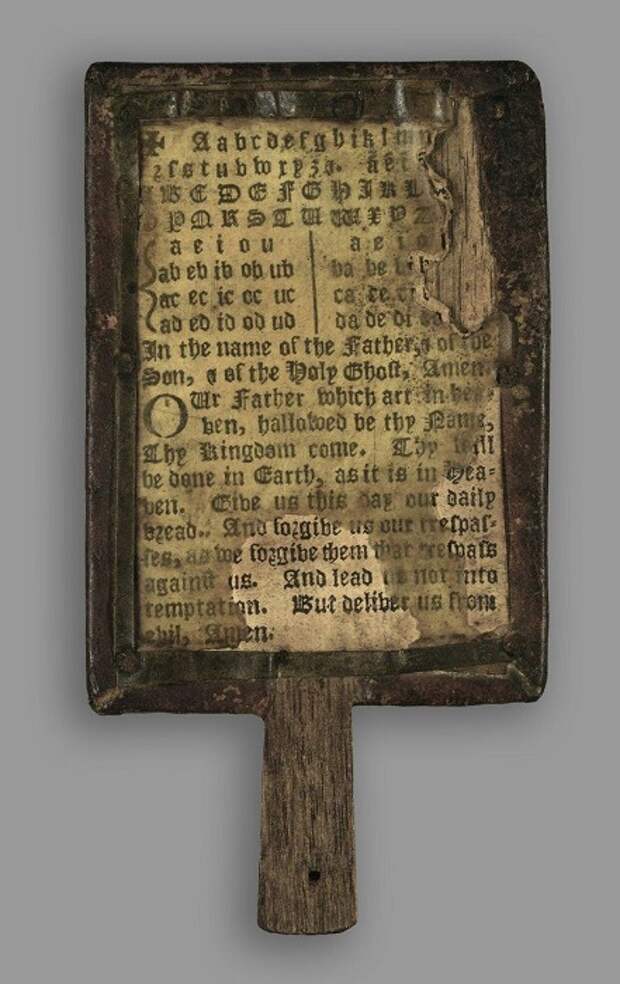 ✠ A a b c d e f g h i k l m n
ꝛ ſ s t u v w x y z ꝫ. ã ẽ ĩ
B C D E F G H I K L
P Q R S T U W X Y Z
a e i o u a e i o
ab eb ib ob ub ba be bi
ac ec ic oc uc ca ce ci
ad ed id od ud da de di
In the name of the Father, ⁊ of the
Son, ⁊ of the Holy Ghoſt, Amen.
OUr Father which art in hea-
ven, hallowed be thy Name,
Thy Kingdom come. Thy will
be done in Earth, as it is in Hea-
ven. Give us this day our daily
bread. And forgive us our treſpaſ-
ſes, as we forgive them that treſpaſs
againſt us. And lead us not into
temptation. But deliver us from
evil, Amen.